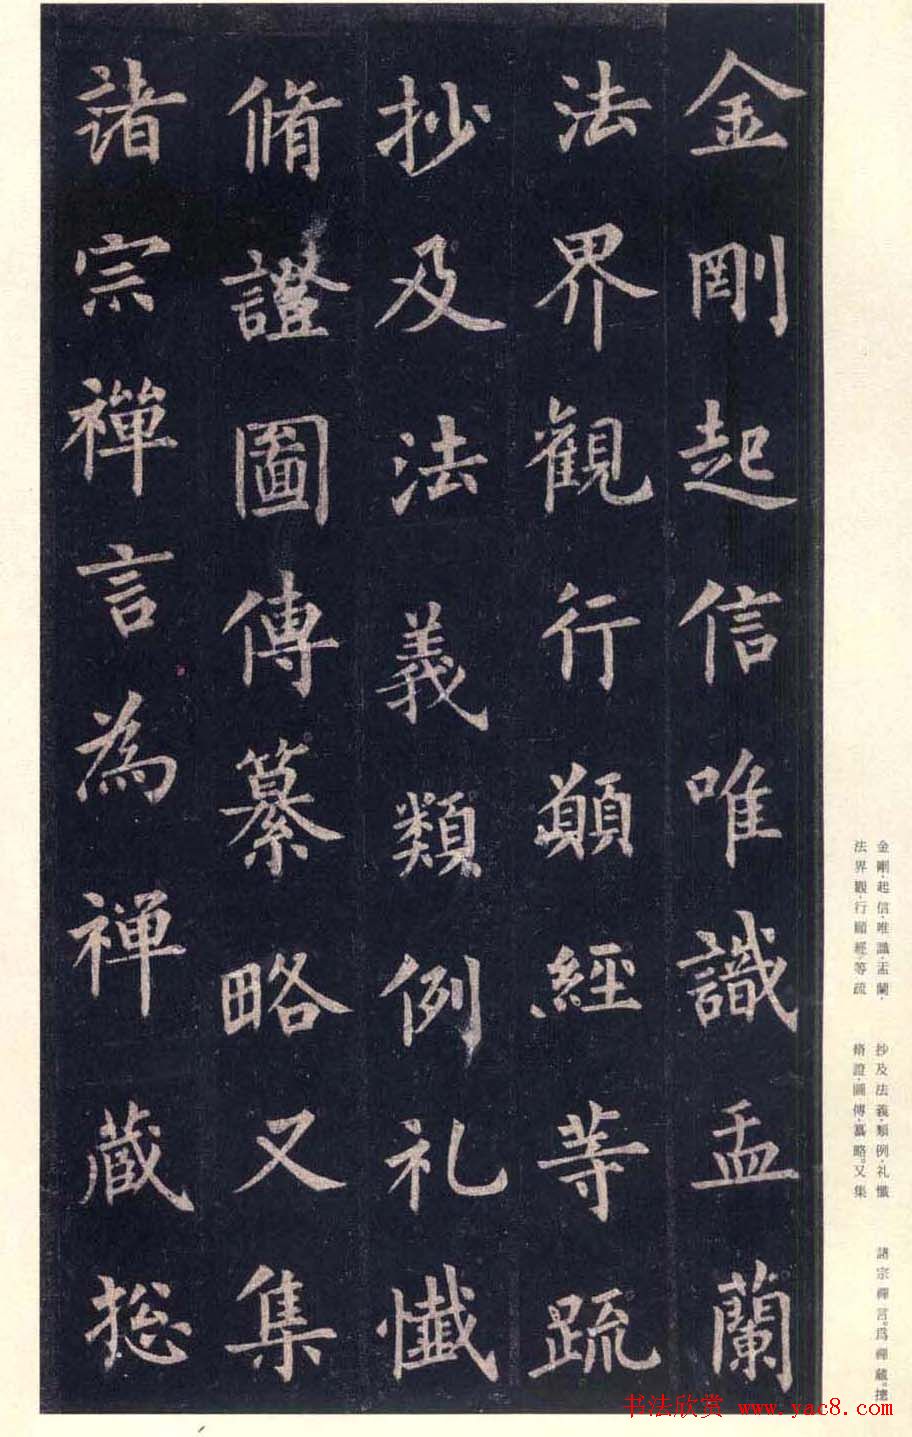 金剛起信唯識盂蘭
法界觀行願經等疏
抄及法義類例礼懺
脩證圖傳纂略又集
諸宗禪言為禪蔵揔
金剛·起信·唯識·盂蘭·
法界觀·行願經·等疏
抄及法義·類例·礼懺
脩證·圖傳·纂略。又集
諸宗禪言。爲禪藏。摠
书法欣赏 www.yac8.com